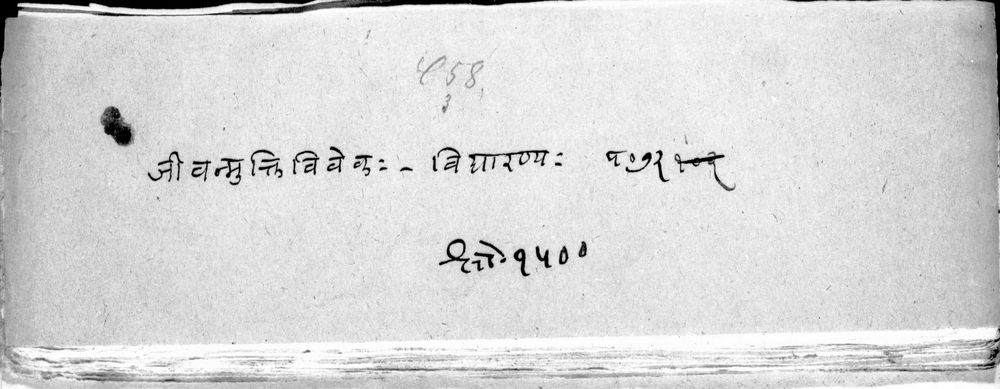 458
3
जीवन्मुक्तिविवेकः - विद्यारण्यः प०७२
श्लो॰ १५००